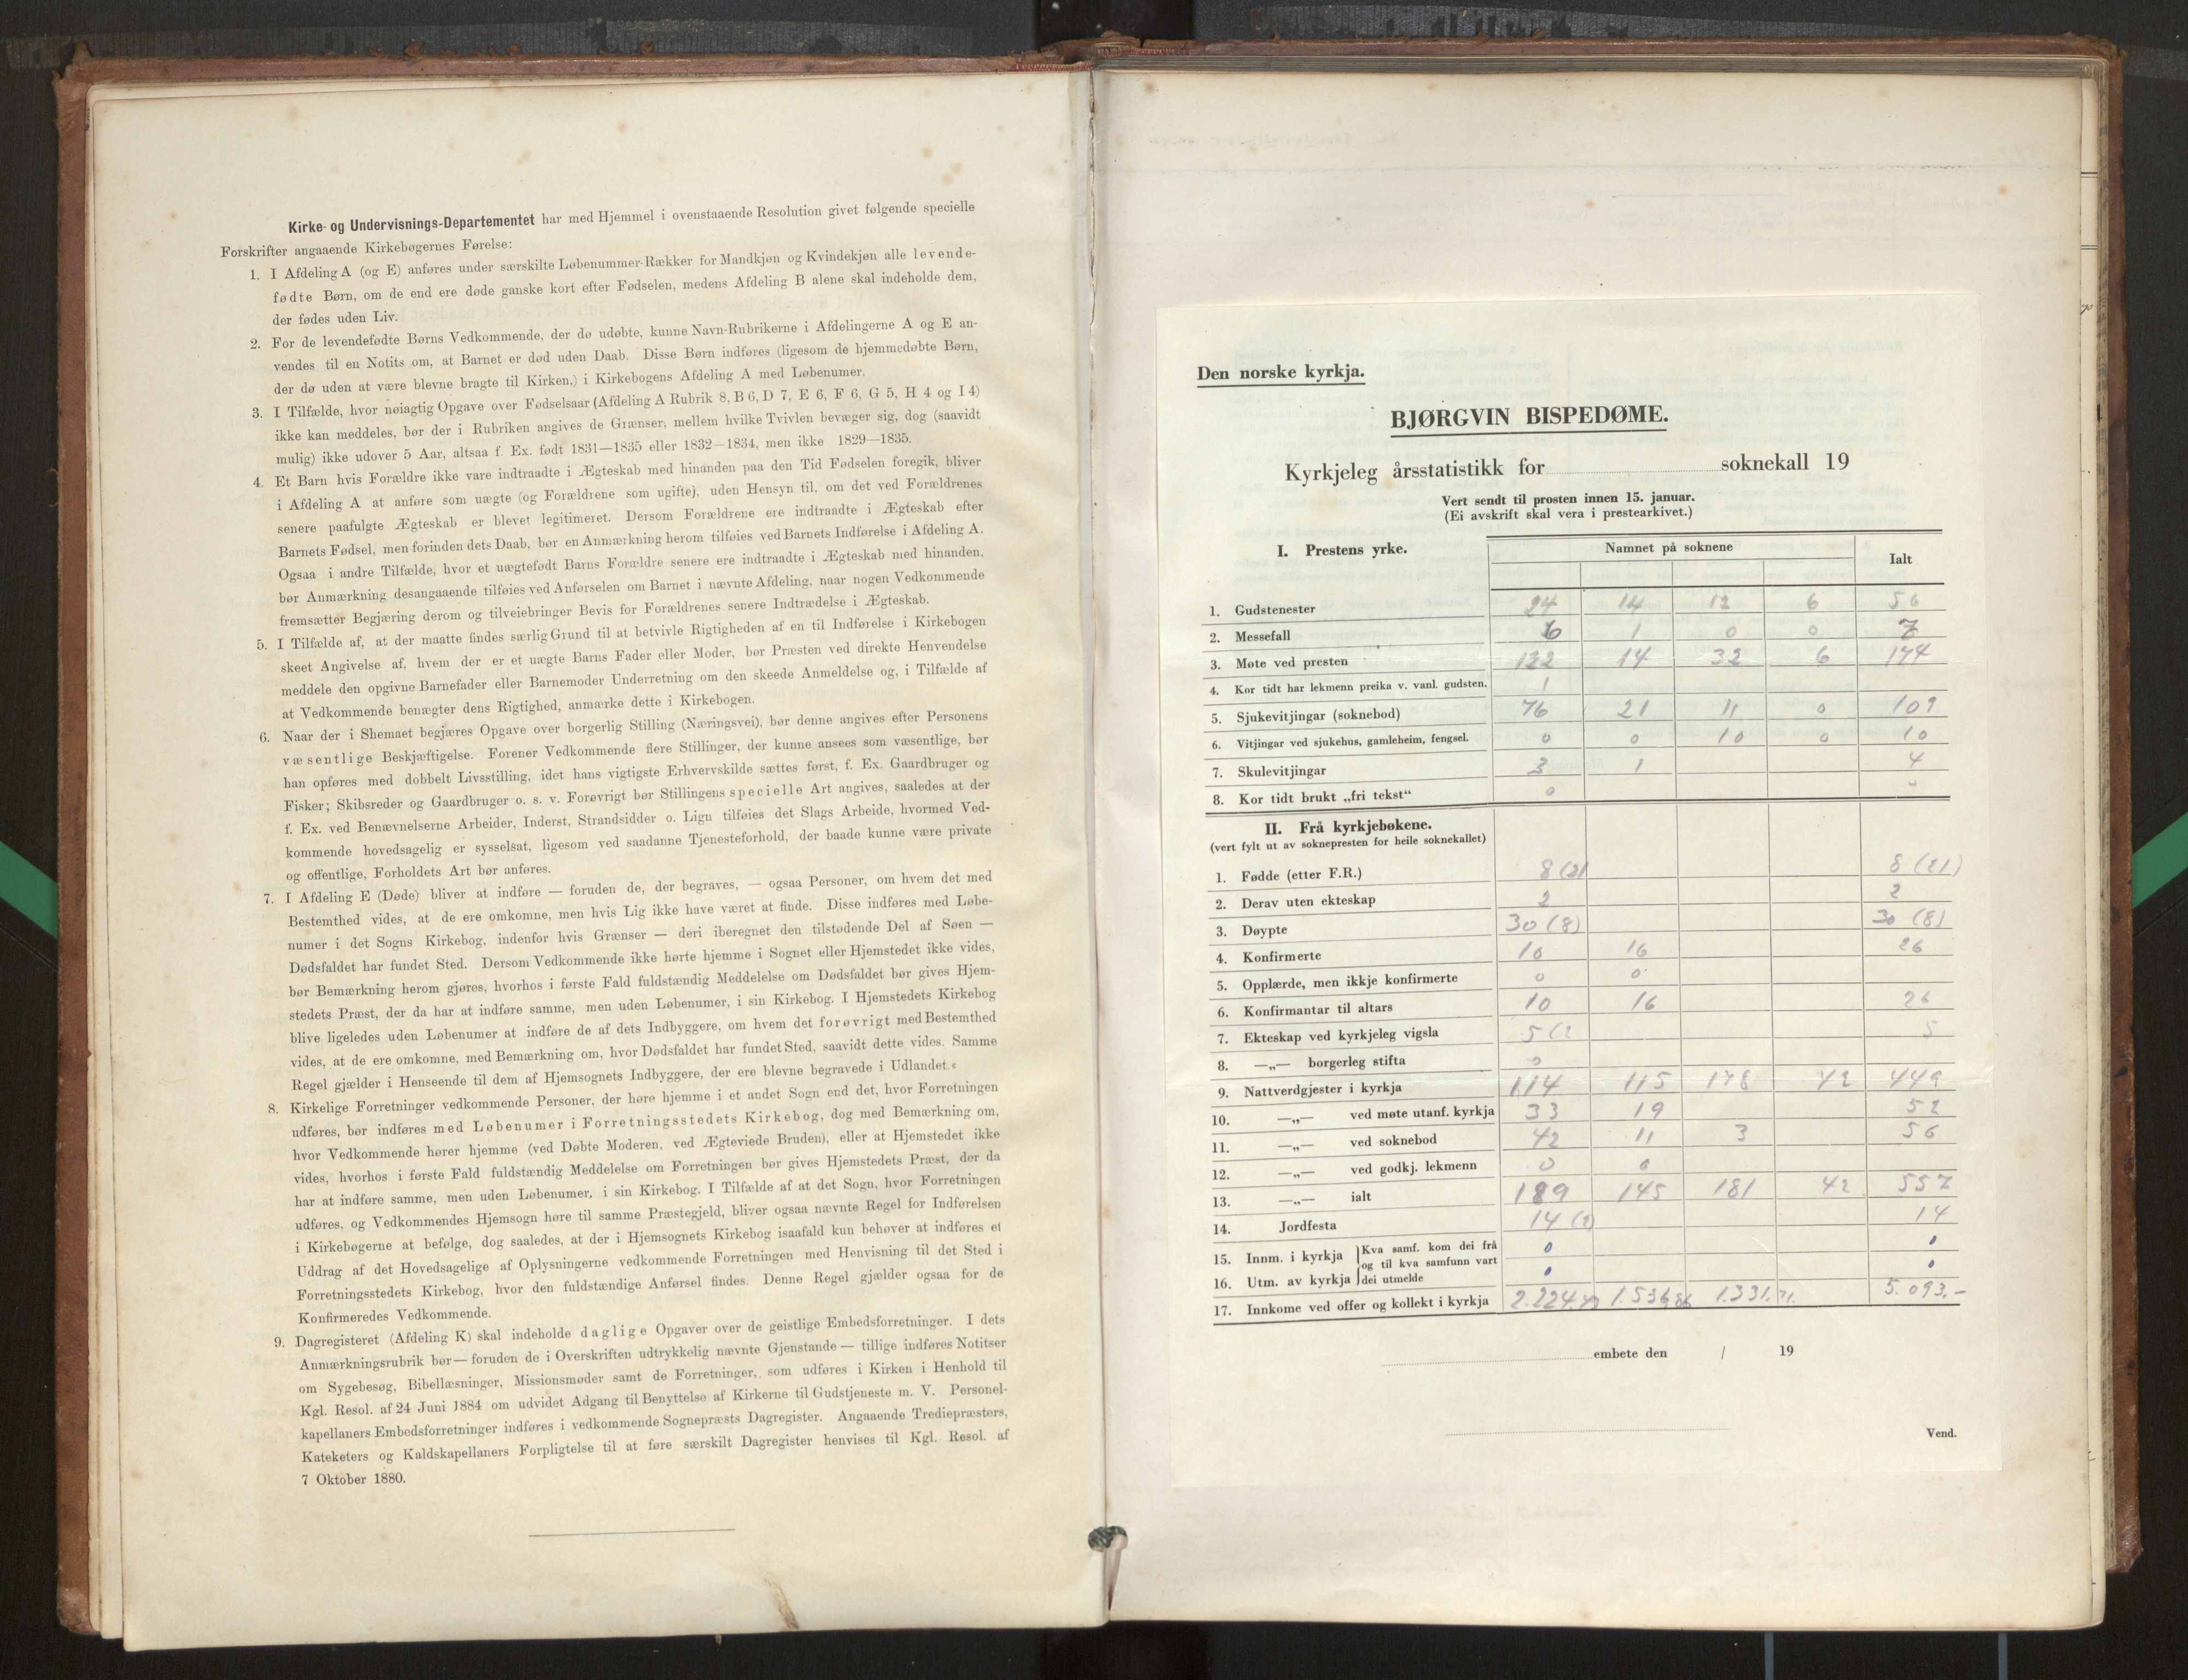 Kirke- og Undervisnings-Departementet har med Hjemmel i ovenstaaende Resolution givet følgende specielle
Forskrifter angaaende Kirkebøgernes Førelse:
1. I Afdeling A (og E) anføres under særskilte Løbenummer-Rækker for Mandkjøn og Kvindekjøn alle levende-
fødte Børn, om de end ere døde ganske kort efter Fødselen, medens Afdeling B alene skal indeholde dem,
der fødes uden Liv.
2. For de levendefødte Børns Vedkommende, der dø udøbte, kunne Navn-Rubrikerne i Afdelingerne A og E an-
vendes til en Notits om, at Barnet er død uden Daab. Disse Børn indføres (ligesom de hjemmedøbte Børn,
der dø uden at være blevne bragte til Kirken,) i Kirkebogens Afdeling A med Løbenumer.
3. I Tilfælde, hvor nøiagtig Opgave over Fødselsaar (Afdeling A Rubrik 8, B 6, D 7, E 6, F 6, G 5, H 4 og I 4)
ikke kan meddeles, bør der i Rubriken angives de Grænser, mellem hvilke Tvivlen bevæger sig, dog (saavidt
mulig) ikke udover 5 Aar, altsaa f. Ex. født 1831—1835 eller 1832—1834, men ikke 1829—1835.
4. Et Barn hvis Forældre ikke vare indtraadte i Ægteskab med hinanden paa den Tid Fødselen foregik, bliver
i Afdeling A at anføre som uægte (og Forældrene som ugifte), uden Hensyn til, om det ved Forældrenes
senere paafulgte Ægteskab er blevet legitimeret. Dersom Forældrene ere indtraadte i Ægteskab efter
Barnets Fødsel, men forinden dets Daab, bør en Anmærkning herom tilføies ved Barnets Indførelse i Afdeling A.
Ogsaa i andre Tilfælde, hvor et uægtefødt Barns Forældre senere ere indtraadte i Ægteskab med hinanden,
bør Anmærkning desangaaende tilføies ved Anførselen om Barnet i nævnte Afdeling, naar nogen Vedkommende
fremsætter Begjæring derom og tilveiebringer Bevis for Forældrenes senere Indtrædelse i Ægteskab.
5. I Tilfælde af, at der maatte findes særlig Grund til at betvivle Rigtigheden af en til Indførelse i Kirkebogen
skeet Angivelse af, hvem der er et uægte Barns Fader eller Moder, bør Præsten ved direkte Henvendelse
meddele den opgivne Barnefader eller Barnemoder Underretning om den skeede Anmeldelse og, i Tilfælde af
at Vedkommende benægter dens Rigtighed, anmærke dette i Kirkebogen.
6. Naar der i Shemaet begjæres Opgave over borgerlig Stilling (Næringsvei), bør denne angives efter Personens
væsentlige Beskjæftigelse. Forener Vedkommende flere Stillinger, der kunne ansees som væsentlige, bør
han opføres med dobbelt Livsstilling, idet hans vigtigste Erhvervskilde sættes først, f. Ex. Gaardbruger og
Fisker; Skibsreder og Gaardbruger o. s. v. Forøvrigt bør Stillingens specielle Art angives, saaledes at der
f. Ex. ved Benævnelserne Arbeider, Inderst, Strandsidder o. Lign tilføies det Slags Arbeide, hvormed Ved-
kommende hovedsagelig er sysselsat, ligesom ved saadanne Tjenesteforhold, der baade kunne være private
og offentlige, Forholdets Art bør anføres.
7. I Afdeling E (Døde) bliver at indføre — foruden de, der begraves, — ogsaa Personer, om hvem det med
Bestemthed vides, at de ere omkomne, men hvis Lig ikke have været at finde. Disse indføres med Løbe-
numer i det Sogns Kirkebog, indenfor hvis Grænser — deri iberegnet den tilstødende Del af Søen —
Dødsfaldet har fundet Sted. Dersom Vedkommende ikke hørte hjemme i Sognet eller Hjemstedet ikke vides,
bør Bemærkning herom gjøres, hvorhos i første Fald fuldstændig Meddelelse om Dødsfaldet bør gives Hjem-
stedets Præst, der da har at indføre samme, men uden Løbenumer, i sin Kirkebog. I Hjemstedets Kirkebog
blive ligeledes uden Løbenumer at indføre de af dets Indbyggere, om hvem det forøvrigt med Bestemthed
vides, at de ere omkomne, med Bemærkning om, hvor Dødsfaldet har fundet Sted, saavidt dette vides. Samme
Regel gjælder i Henseende til dem af Hjemsognets Indbyggere, der ere blevne begravede i Udlandet.«
8. Kirkelige Forretninger vedkommende Personer, der høre hjemme i et andet Sogn end det, hvor Forretningen
udføres, bør indføres med Løbenumer i Forretningsstedets Kirkebog, dog med Bemærkning om,
hvor Vedkommende hører hjemme (ved Døbte Moderen, ved Ægteviede Bruden), eller at Hjemstedet ikke
vides, hvorhos i første Fald fuldstændig Meddelelse om Forretningen bør gives Hjemstedets Præst, der da
har at indføre samme, men uden Løbenumer, i sin Kirkebog. I Tilfælde af at det Sogn, hvor Forretningen
udføres, og Vedkommendes Hjemsogn høre til samme Præstegjeld, bliver ogsaa nævnte Regel for Indførelsen
i Kirkebøgerne at befølge, dog saaledes, at der i Hjemsognets Kirkebog isaafald kun behøver at indføres et
Uddrag af det Hovedsagelige af Oplysningerne vedkommende Forretningen med Henvisning til det Sted i
Forretningsstedets Kirkebog, hvor den fuldstændige Anførsel findes. Denne Regel gjælder ogsaa for de
Konfirmeredes Vedkommende.
9. Dagregisteret (Afdeling K) skal indeholde daglige Opgaver over de geistlige Embedsforretninger. I dets
Anmærkningsrubrik bør — foruden de i Overskriften udtrykkelig nævnte Gjenstande — tillige indføres Notitser
om Sygebesøg, Bibellæsninger, Missionsmøder samt de Forretninger, som udføres i Kirken i Henhold til
Kgl. Resol. af 24 Juni 1884 om udvidet Adgang til Benyttelse af Kirkerne til Gudstjeneste m. V. Personel-
kapellaners Embedsforretninger indføres i vedkommende Sognepræsts Dagregister. Angaaende Tredlepræsters,
Kateketers og Kaldskapellaners Forpligtelse til at føre særskilt Dagregister henvises til Kgl. Resol. af
7 Oktober 1880.
Den norske kyrkja.
BJØRGVIN BISPEDØME.
Kyrkjeleg årsstatistikk for soknekall 19
Vert sendt til prosten innen 15. januar.
(Ei avskrift skal vera i prestearkivet.)
I. Prestens yrke. Namnet på soknene Ialt
1. Gudstenester 24 14 12 6 56
2. Messefall 6 1 0 0 7
3. Møte ved presten 122 14 32 6 174
4. Kor tidt har lekmenn preika v. vanl. gudsten. 1
5. Sjukevitjingar (soknebod) 76 21 11 0 109
6. Vitjingar ved sjukehus, gamleheim, fengsel. 0 0 10 0 10
7. Skulevitjingar 3 1 4
8. Kor tidt brukt „fri tekst“ 0
II. Frå kyrkjebøkene.
(vert fylt ut av soknepresten for heile soknekallet)
1. Fødde (etter F.R.) 8 (21 8 (21)
2. Derav uten ekteskap 2 2
3. Døypte 30 (8) 30 (8)
4. Konfirmerte 10 16 26
5. Opplærde, men ikkje konfirmerte 0 0
6. Konfirmantar til altars 10 16 26
7. Ekteskap ved kyrkjeleg vigsla 5 (2 5
8. —„— borgerleg stifta 0
9. Nattverdgjester i kyrkja 114 115 178 42 449
10. —„— ved møte utanf. kyrkja 33 19 52
11. —„— ved soknebod 42 11 3 56
12. —„— ved godkj. lekmenn 0 0
13. —„— ialt 189 145 181 42 557
14. Jordfesta 14 (2) 14
15. Innm. i kyrkja Kva samf. kom dei frå 0 0
og til kva samfunn vart
16. Utm. av kyrkja dei utmelde 0 0
17. Innkome ved offer og kollekt i kyrkja 2.224. 1.536,86 1.331,71. 5.093.—
embete den / 19
Vend.